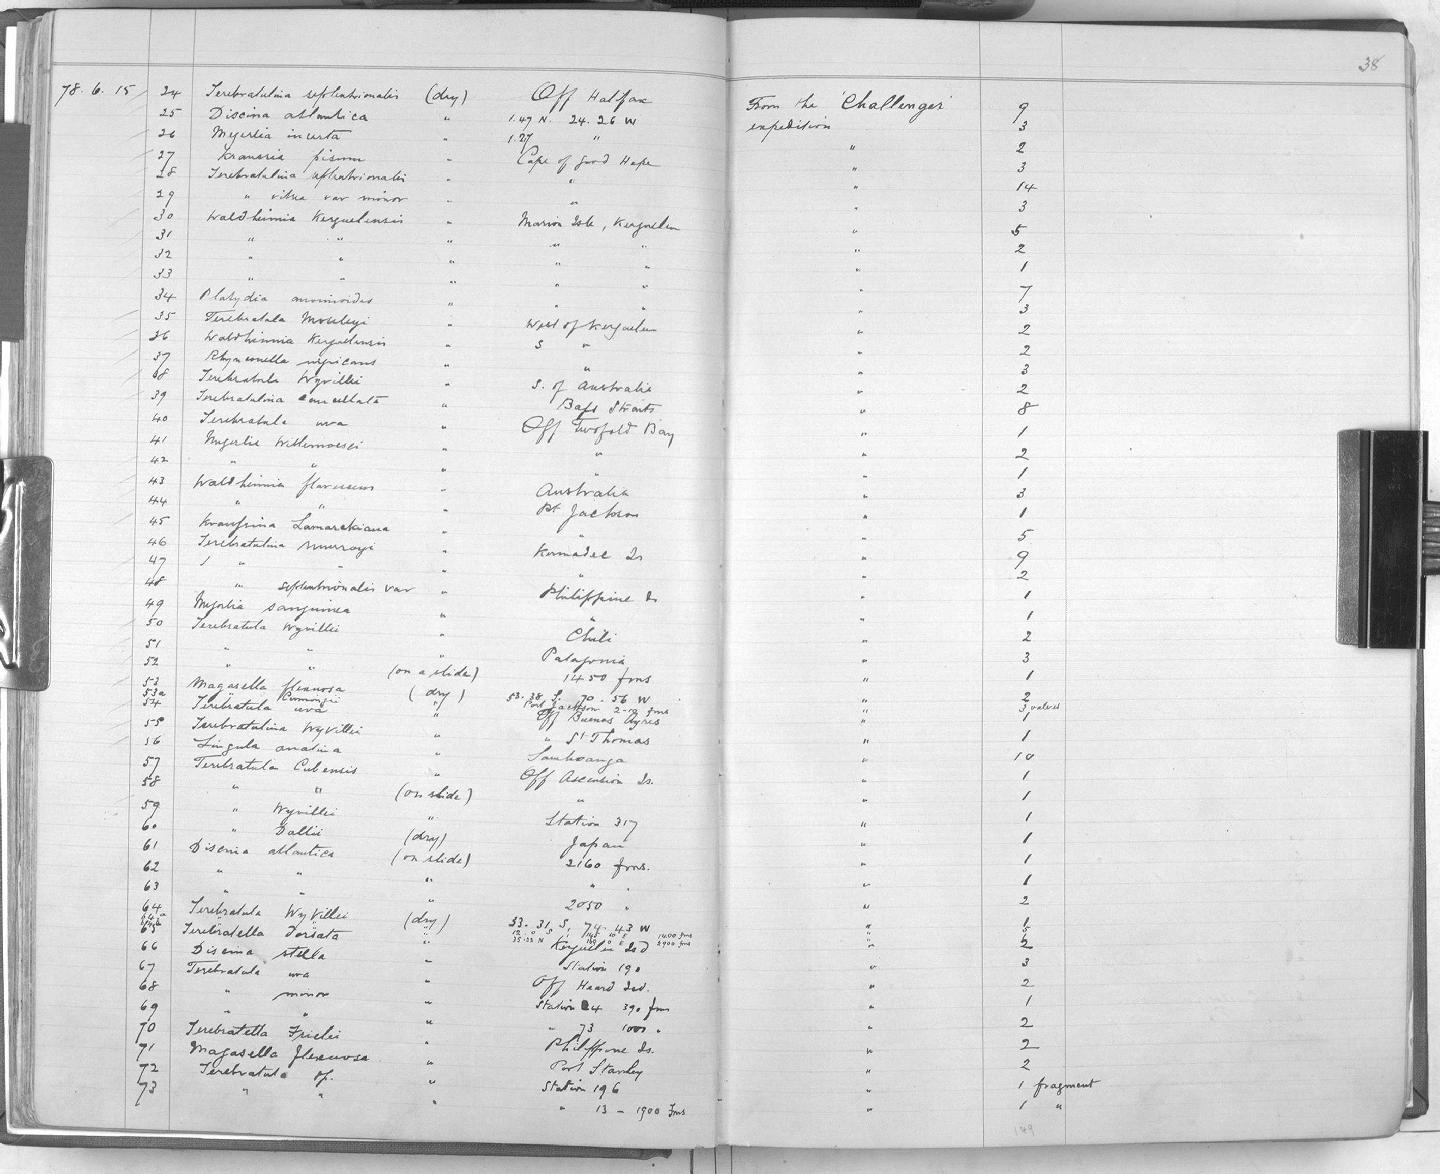 38
78. 6. 15 24 Terebratulina septentrionalis (dry) Off Halifax From the 'Challenger' 9
25 Discina atlantica " 1.47 N. 24.26 W expedition 3
26 Megerlia incerta " 1.27 " " 2
27 Kraussia pisum " Cape of Good Hope " 3
28 Terebratulina septentrionalis " " " 14
29 " vitrea var minor " " " 3
30 Waldheimia Kerguelensis " Marion Isle, Kerguelen " 5
31 " " " " " " 2
32 " " " " " " 1
33 " " " " " " 7
34 Platydia anomioides " " " " 3
35 Terebratula Moseleyi " West of Kerguelen " 2
36 Waldheimia Kerguelensis " S " " 2
37 Rhynconella nigricans " " " 3
38 Terebratula Wyvillii " S. of Australia " 2
39 Terebratulina cancellata " Bass Straits " 8
40 Terebratula uva " Off Twofold Bay " 1
41 Megerlia Willemoesei " " " 2
42 " " " " " 1
43 Waldheimia flavescens " Australia " 3
44 " " " Pt Jackson " 1
45 Kraussina Lamarckiana " " " 5
46 Terebratulina Murrayi " Kermadec Is " 9
47 " " " " " 2
48 " septentrionalis var " Philippine Is " 1
49 Megerlia sanguinea " " " 1
50 Terebratula Wyvillii " Chili " 2
51 " " " Patagonia " 3
52 " " (on a slide) 1450 fms " 1
53 Magasella flexuosa (dry) 53. 38 S. 70. 56 W " 2
53a " Cumingii " Port Jackson 2-10 fms " 3 valves
54 Terebratula uva " Off Buenos Ayres " 1
55 Terebratulina Wyvillii " " St Thomas " 1
56 Lingula anatina " Samboanga " 10
57 Terebratula Cubensis " Off Ascension Is. " 1
58 " " (on slide) " " 1
59 " Wyvillii " Station 317 " 1
60 " Dallii (dry) Japan " 1
61 Discina atlantica (on slide) 2160 fms. " 1
62 " " " " " " 1
63 " " " 2050 " " 2
64 Terebratula Wyvillii (dry) 33. 31 S, 74. 43 W "
65 Terebratella Dorsata " Kerguelen Isd " 2
66 Discina stella " Station 190 " 3
67 Terebratula uva " Off Heard Isd. " 2
68 " minor " Station 24 390 fms " 1
69 " " " " 73 1000 " " 2
70 Terebratella Frielii " Philippine Is. " 2
71 Magasella flexuosa " Port Stanley " 2
72 Terebratula sp. " Station 196 " 1 fragment
73 " " " " 13 – 1900 fms " 1 "
149